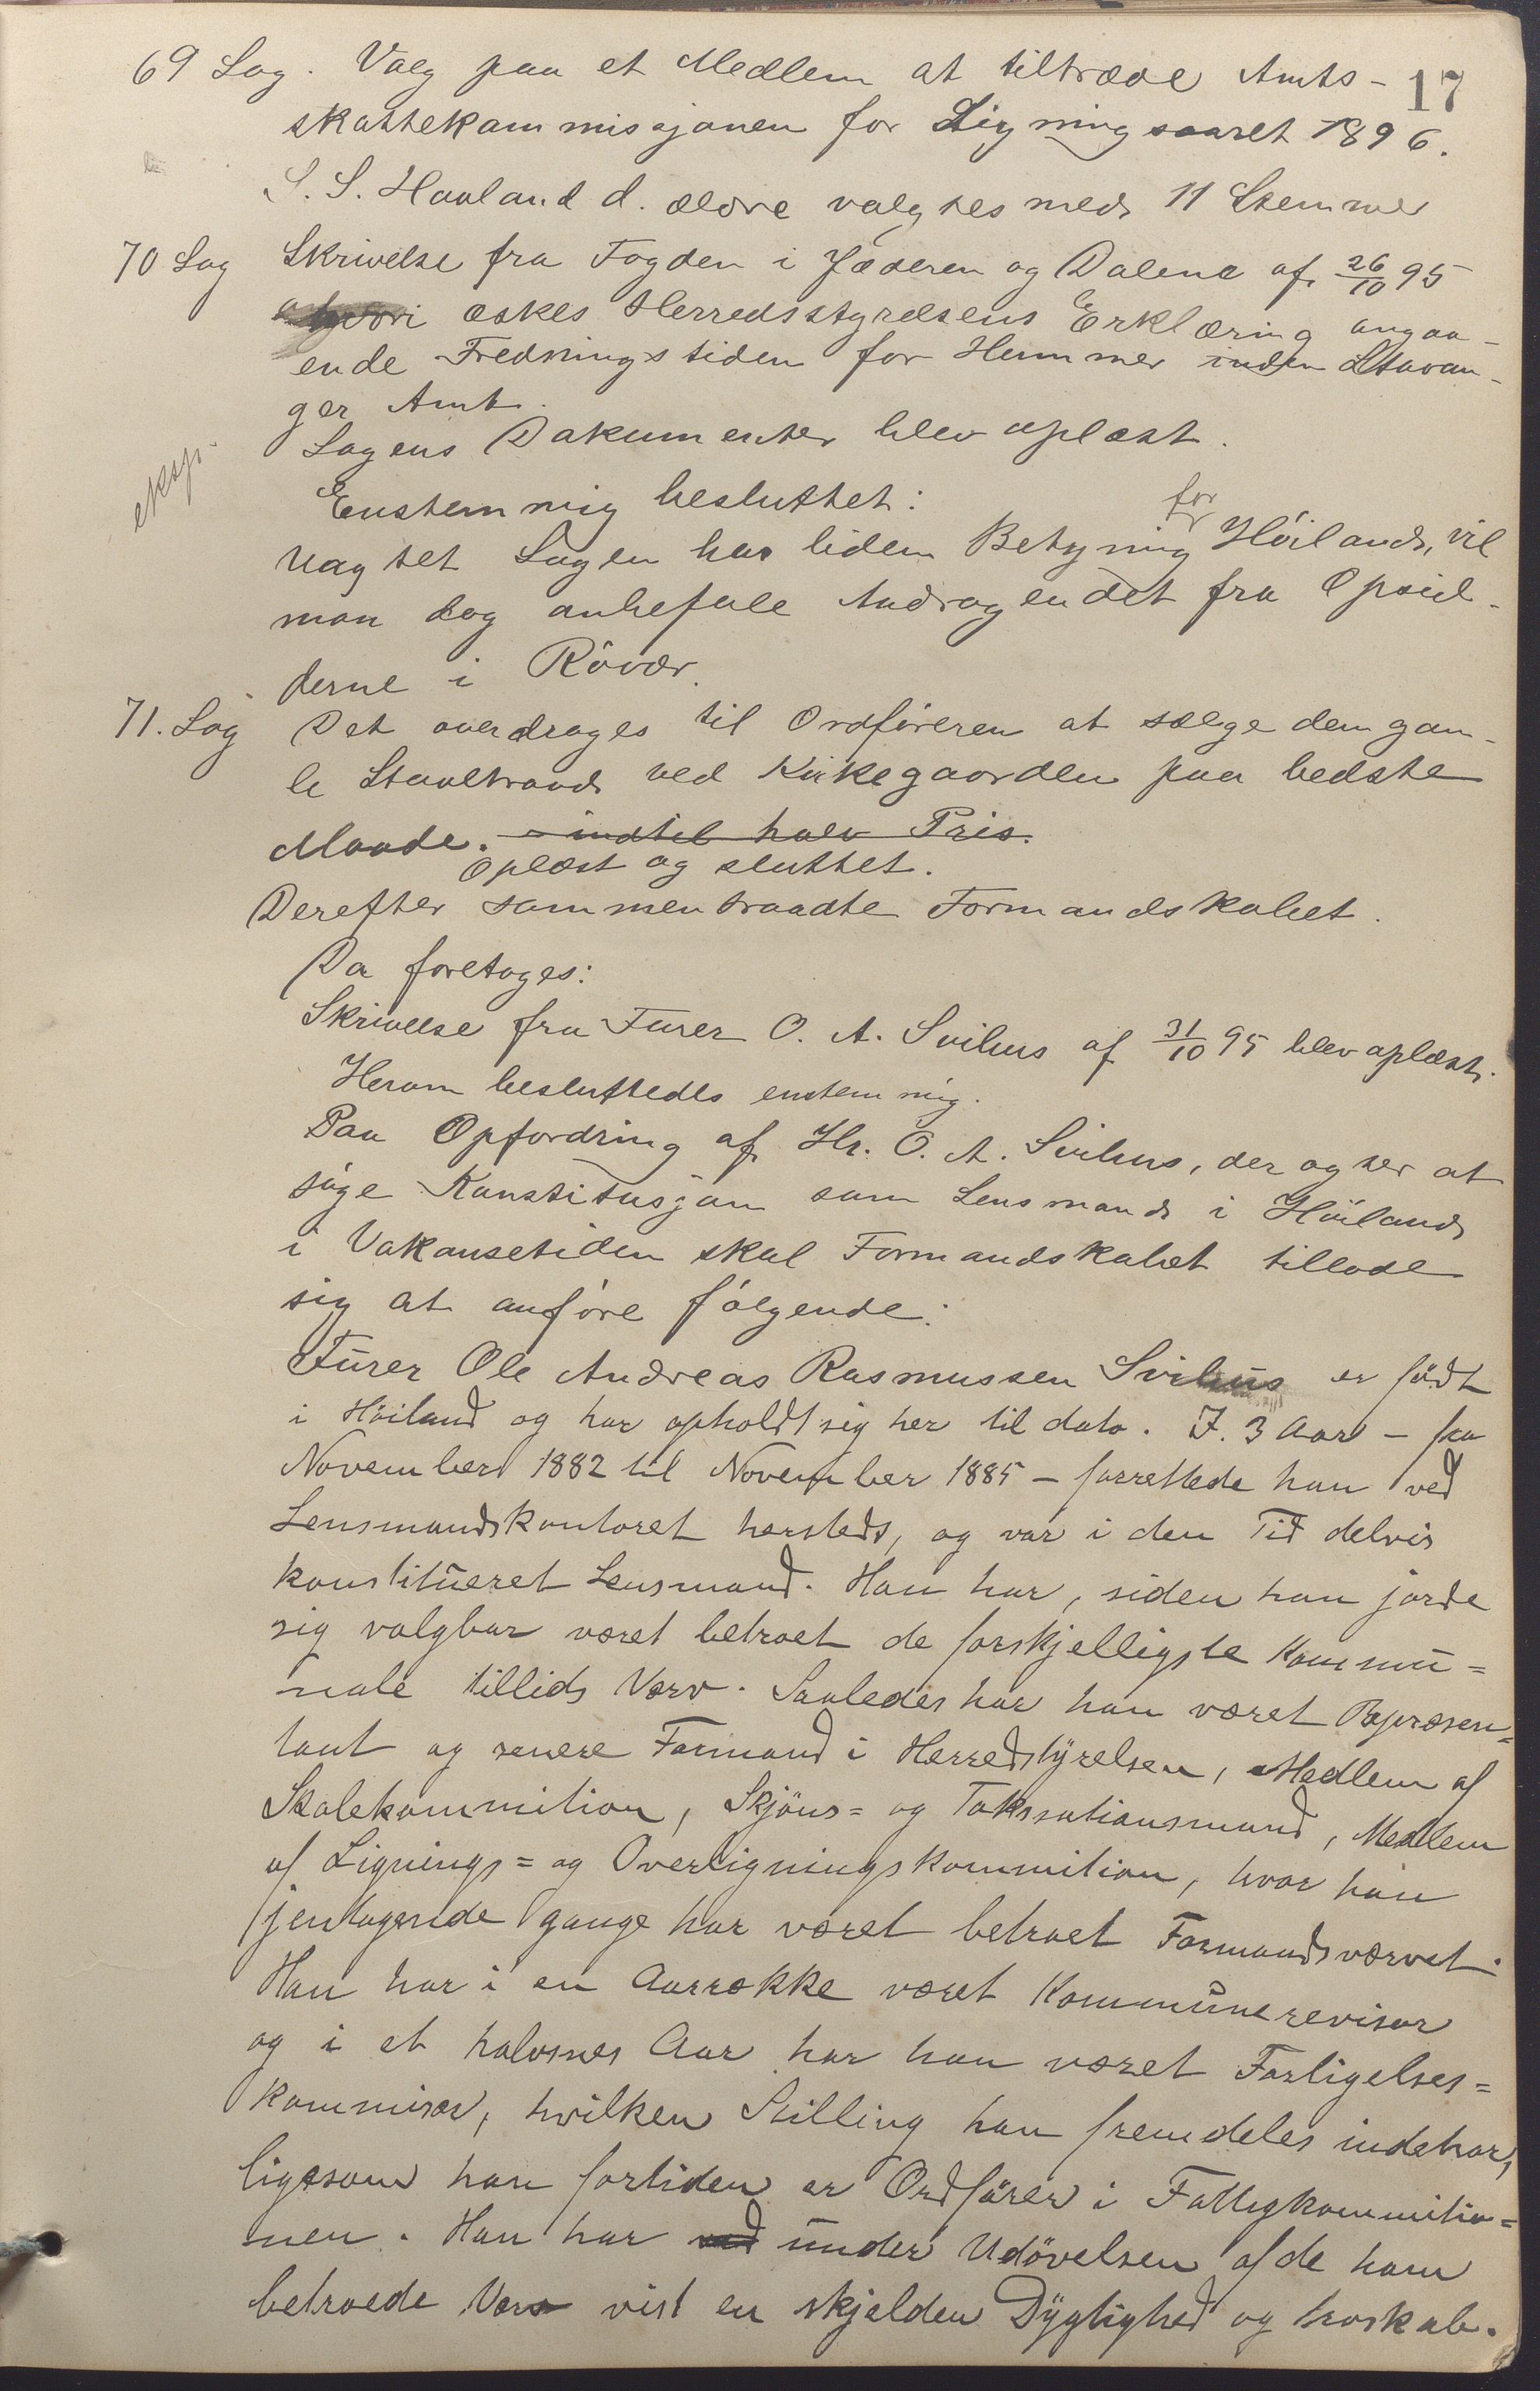 17
69 Sag. Valg paa et Medlem at tiltræde Amts-
skattekammissjonen for Ligningsaaret 1896.
S. S. Haaland d. ældre valgtes med 11 Stemmer
70 Sag Skrivelse fra Fogden i Jæderen og Dalene af 26/10 95
hvori æskes Herredsstyrelsens Erklæring angaa-
ende Fredningstiden for Hummer inden Stavan-
ger Amt.
Sagens Dakumenter blev oplæst.
eksp.
Enstemmig besluttet:
Uagtet Sagen har liden Betyning for Höiland, vil
man dog anbefale Andragendet fra Opsid-
derne i Rövær.
71. Sag Det overdrages til Ordföreren at sælge den gam-
le Staaltraad ved Kirkegaarden paa bedste
Maade. indtil halv Pris.
Oplæst og sluttet.
Derefter sammentraadte Formandskabet.
Da foretoges:
Skrivelse fra Furer O. A. Svihus af 31/10 95 blev oplæst.
Herom besluttedes enstemmig.
Paa Opfordring af Hr. O. A. Svihus, der agter at
söge Konstitusjon som Lensmand i Höiland
i Vakansetiden skal Formandskabet tillade
sig at anföre fölgende:
Furer Ole Andreas Rasmussen Svihus er födt
i Höiland og har opholdt sig her til dato. I. 3 Aar – fra
November 1882 til November 1885 – forrettede han ved
Lensmandskontoret hersteds, og var i den Tid delvis
konstitueret Lensmand. Han har, siden han jorde
sig valgbar været betroet de forskjelligste Kommu=
nale tillids Værv. Saaledes har han været Repræsen=
tant og senere Formand i Herredstyrelsen, Medlem af
Skolekommition, Skjöns= og Takssationsmand, Medlem
af Lignings= og Overligningskommition, hvor han
jentagende gange har været betroet Formandsværvet.
Han har i en Aarrække været Kommunerevisor
og i et halvsnes Aar har han været Forligelses=
kommisær, hvilken Stilling han fremdeles indehar,
ligesom han fortiden er Ordförer i Fattigkommitio=
nen. Han har ved under Udövelsen af de ham
betroede Værv vist en skjelden Dygtighed og troskab.